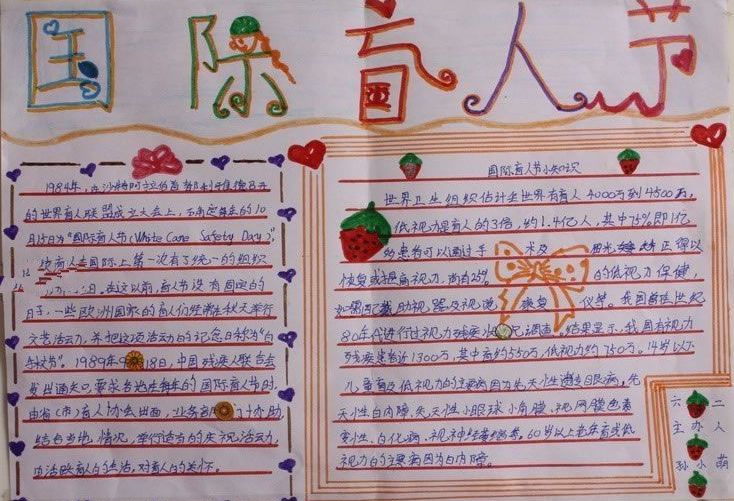 国际盲人节
1984年,在沙特阿拉伯首都利雅得召开
的世界盲人联盟成立大会上,确定每年的10
月15日为“国际盲人节(White Cane Safety Day)”,
盲人在国际上第一次有了统一的组织
在这以前,盲人节没有固定的
日子,一些欧洲国家的盲人经常在秋天举行
文艺活动,并把这项活动的记念日称为“白
1989年9 18日,中国残疾人联合会
发出通知,要求各地在每年的国际盲人节时,
由省(市)盲人协会出面,业务 协助,
结合当地情况,举行适当的庆祝活动,
活跃盲人的生活,对盲人的关怀。
国际盲人节小知识
世界卫生组织估计全世界有盲人4000万到4500万,
低视力是盲人的3倍,约1.4亿人,其中75%即1亿
的患者可以通过手术及 屈光 矫正得以
恢复或提高视力,尚有25% 的低视力保健,
如果匹配助视器及视觉 康复 仪等。我国曾在世纪
80年代进行过视力残疾 调查。结果显示,我国有视力
残疾患者近1300万,其中盲约550万,低视力约750万。14岁以下
儿童盲及低视力的主要病因为先天性遗传眼病,先
天性白内障,先天性小眼球小角膜、视网膜色素
变性、白化病、视神经萎缩等。60岁以上老年盲或低
视力的主要病因为白内障。
六 二
主办人
孙小萌